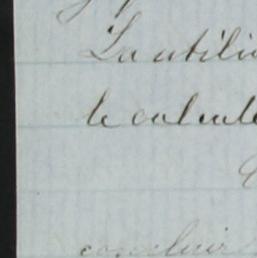 La utili
le calcule
concluir